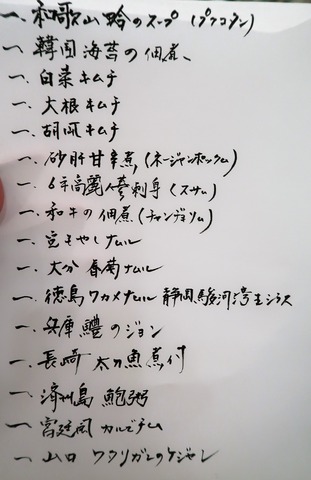 一、和歌山蛤のスープ(プゴタン)
一、韓国海苔の佃煮、
一、白菜キムチ
一、大根キムチ
一、胡瓜キムチ
一、砂肝甘辛煮(ネージャンポックム)
一、6年高麗人参刺身(スサム)
一、和牛の佃煮(チャンヂョリム)
一、豆もやしナムル
一、大分 春菊ナムル
一、徳島ワカメナムル 静岡駿河湾生シラス
一、兵庫 鱧のジョン
一、長崎 太刀魚煮付
一、済州島 鮑粥
一、宮廷風 カルビチム
一、山口 ワタリガニのケジャン